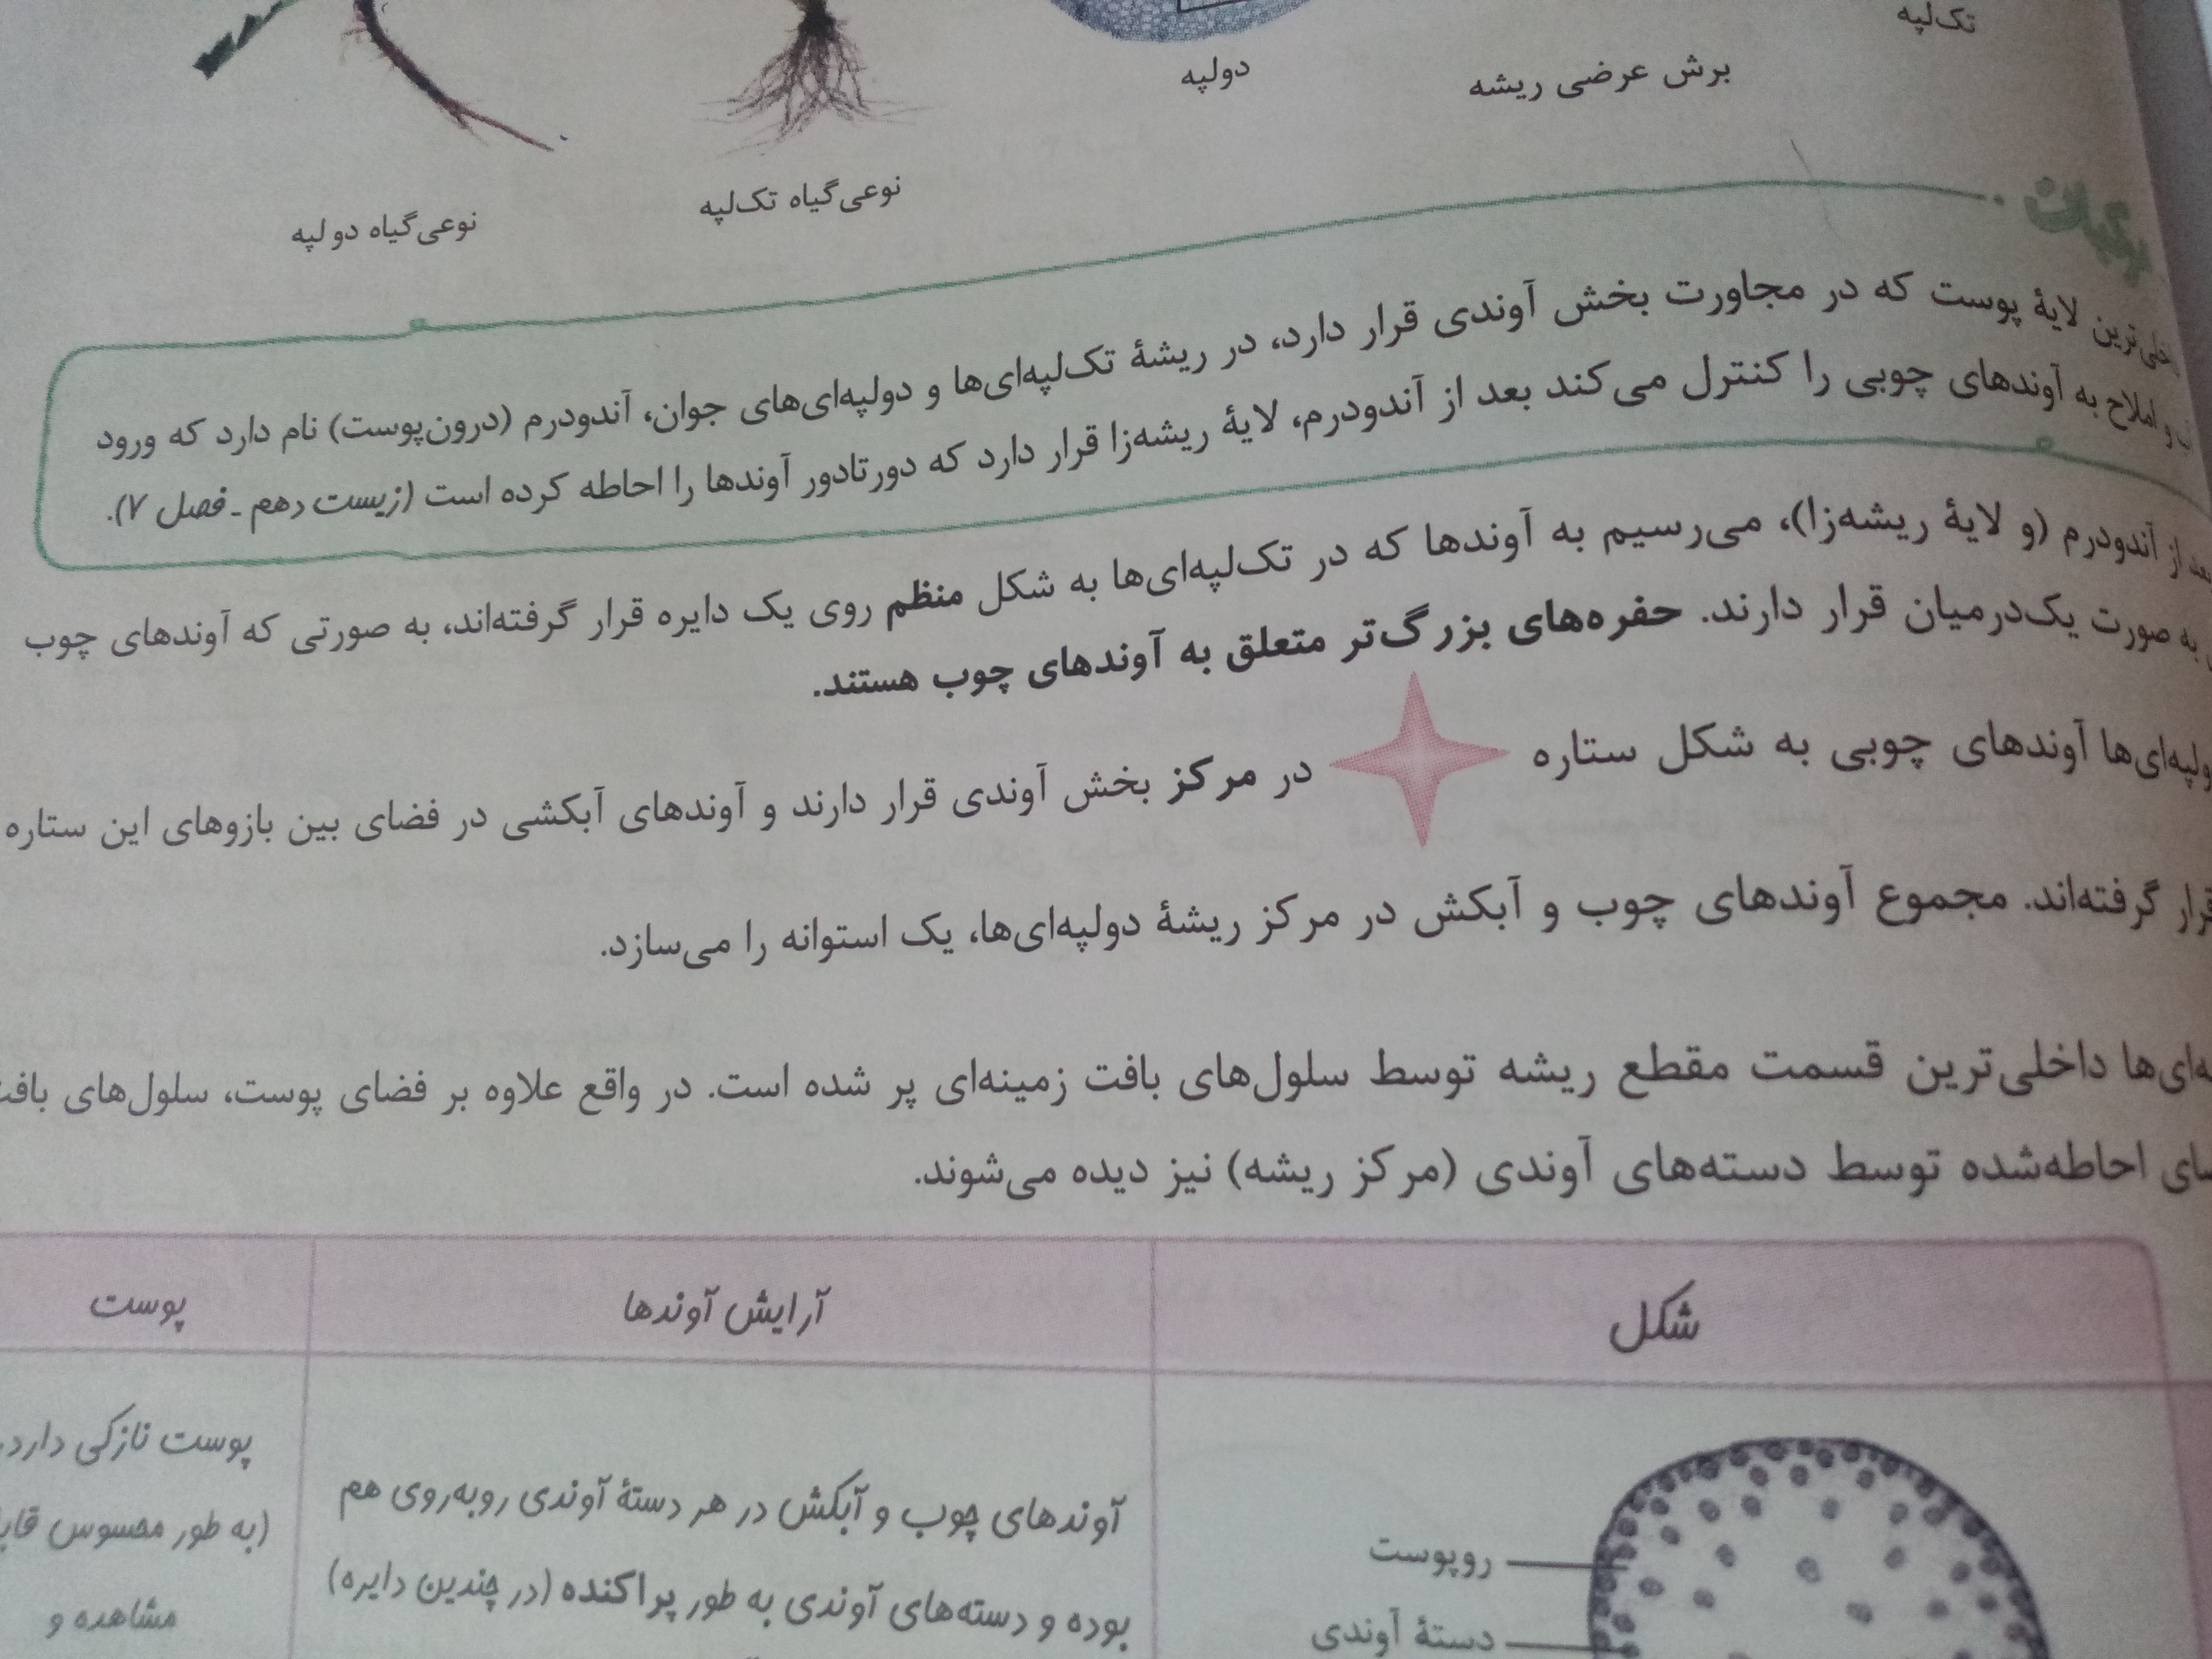 تک‌لپه
دولپه
برش عرضی ریشه
نوعی‌گیاه تک‌لپه
نوعی‌گیاه دو لپه
لایهٔ پوست که در مجاورت بخش آوندی قرار دارد، در ریشهٔ تک‌لپه‌ای‌ها و دولپه‌ای‌های جوان، آندودرم (درون‌پوست) نام دارد که ورود
و املاح به آوندهای چوبی را کنترل می‌کند بعد از آندودرم، لایهٔ ریشه‌زا قرار دارد که دورتادور آوندها را احاطه کرده است (زیست دهم ـ فصل ۷).
بعد از آندودرم (و لایهٔ ریشه‌زا)، می‌رسیم به آوندها که در تک‌لپه‌ای‌ها به شکل منظم روی یک دایره قرار گرفته‌اند، به صورتی که آوندهای چوب
به صورت یک‌درمیان قرار دارند. حفره‌های بزرگ‌تر متعلق به آوندهای چوب هستند.
آوندهای چوبی به شکل ستاره در مرکز بخش آوندی قرار دارند و آوندهای آبکشی در فضای بین بازوهای این ستاره
قرار گرفته‌اند. مجموع آوندهای چوب و آبکش در مرکز ریشهٔ دولپه‌ای‌ها، یک استوانه را می‌سازد.
داخلی‌ترین قسمت مقطع ریشه توسط سلول‌های بافت زمینه‌ای پر شده است. در واقع علاوه بر فضای پوست، سلول‌های بافت
احاطه‌شده توسط دسته‌های آوندی (مرکز ریشه) نیز دیده می‌شوند.
شکل
آرایش آوندها
پوست
آوندهای چوب و آبکش در هر دستهٔ آوندی روبه‌روی هم
بوده و دسته‌های آوندی به طور پراکنده (در چندین دایره)
پوست نازکی دارد.
(به طور محسوس
مشاهده و
روپوست
دستهٔ آوندی